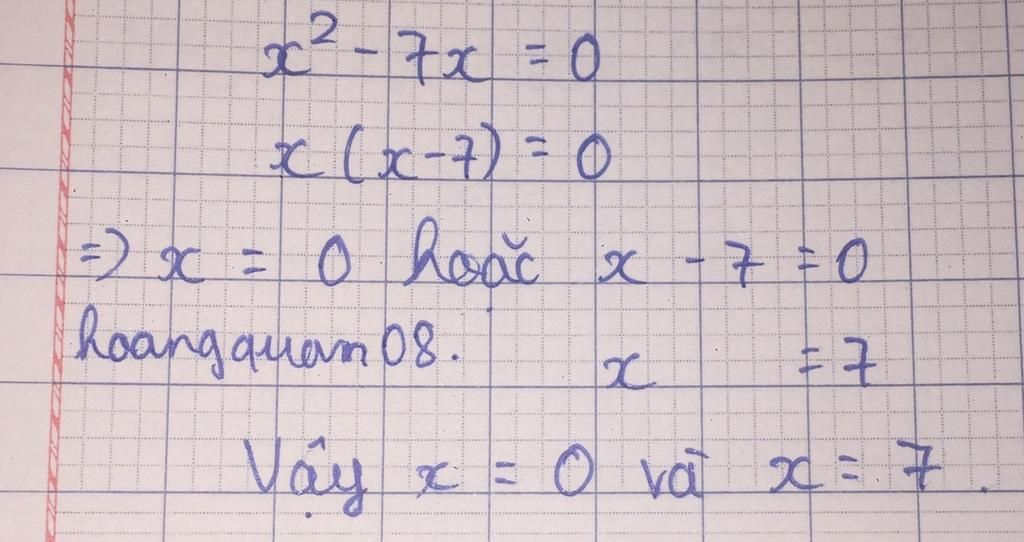 x² - 7x = 0
x (x - 7) = 0
=> x = 0 hoặc x - 7 = 0
hoangquan08. x = 7
Vậy x = 0 và x = 7.